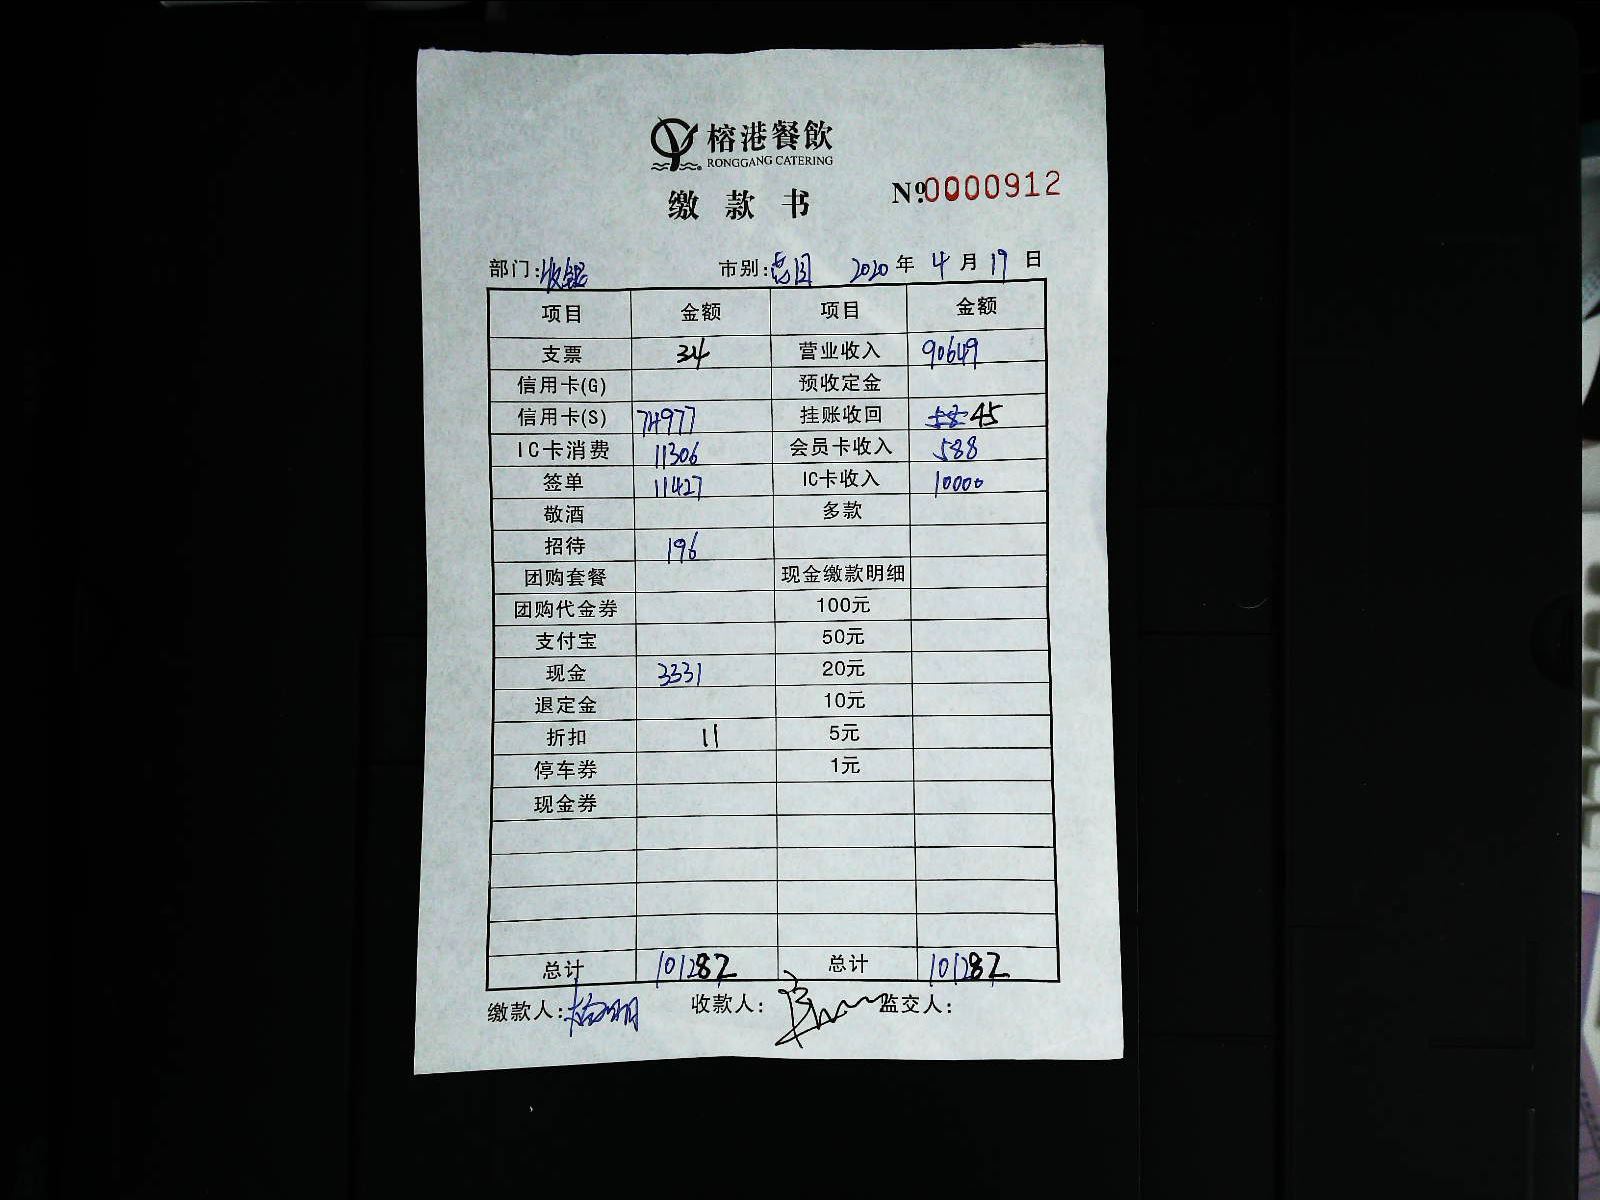 榕港餐飲
RONGGANG CATERING
缴款书
№0000912
部门:收银 市别: 2020年4月19日
项目 金额 项目 金额
支票 34 营业收入 90649
信用卡(G) 预收定金
信用卡(S) 74977 挂账收回 58 45
IC卡消费 11306 会员卡收入 588
签单 11427 IC卡收入 10000
敬酒 多款
招待 196
团购套餐 现金缴款明细
团购代金券 100元
支付宝 50元
现金 3331 20元
退定金 10元
折扣 11 5元
停车券 1元
现金券
总计 101282 总计 101282
缴款人: 收款人: 监交人: